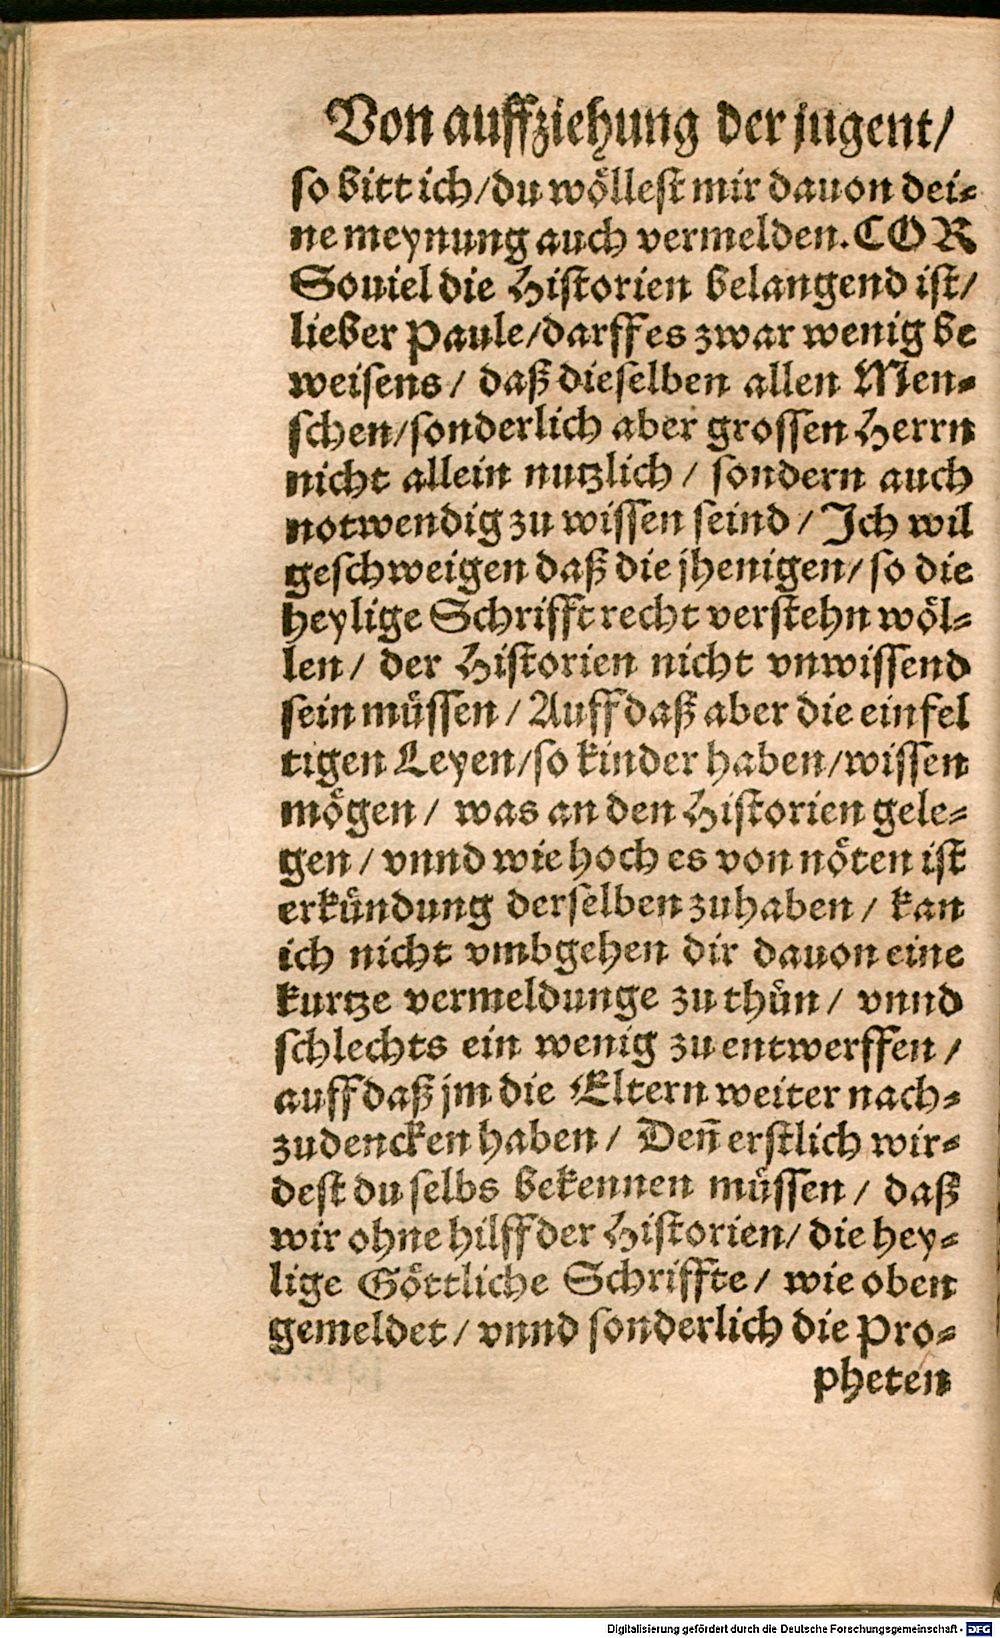 Von auffziehung der jugent/
so bitt ich/du wöllest mir dauon dei-
ne meynung auch vermelden. COR
Souiel die Historien belangend ist/
lieber Paule/darff es zwar wenig be
weisens/ daß dieselben allen Men-
schen/sonderlich aber grossen Herrn
nicht allein nutzlich/ sondern auch
notwendig zu wissen seind/ Ich wil
geschweigen daß die jhenigen/ so die
heylige Schrifft recht verstehn wöl-
len/ der Historien nicht vnwissend
sein müssen/ Auff daß aber die einfel
tigen Leyen/so kinder haben/wissen
mögen/ was an den Historien gele-
gen/ vnnd wie hoch es von nöten ist
erkündung derselben zuhaben/ kan
ich nicht vmbgehen dir dauon eine
kurtze vermeldunge zu thůn/ vnnd
schlechts ein wenig zu entwerffen/
auff daß jm die Eltern weiter nach-
zudencken haben/ Deñ erstlich wir-
dest du selbs bekennen müssen/ daß
wir ohne hilff der Historien/ die hey-
lige Göttliche Schriffte/ wie oben
gemeldet/ vnnd sonderlich die Pro-
pheten
Digitalisierung gefördert durch die Deutsche Forschungsgemeinschaft - DFG